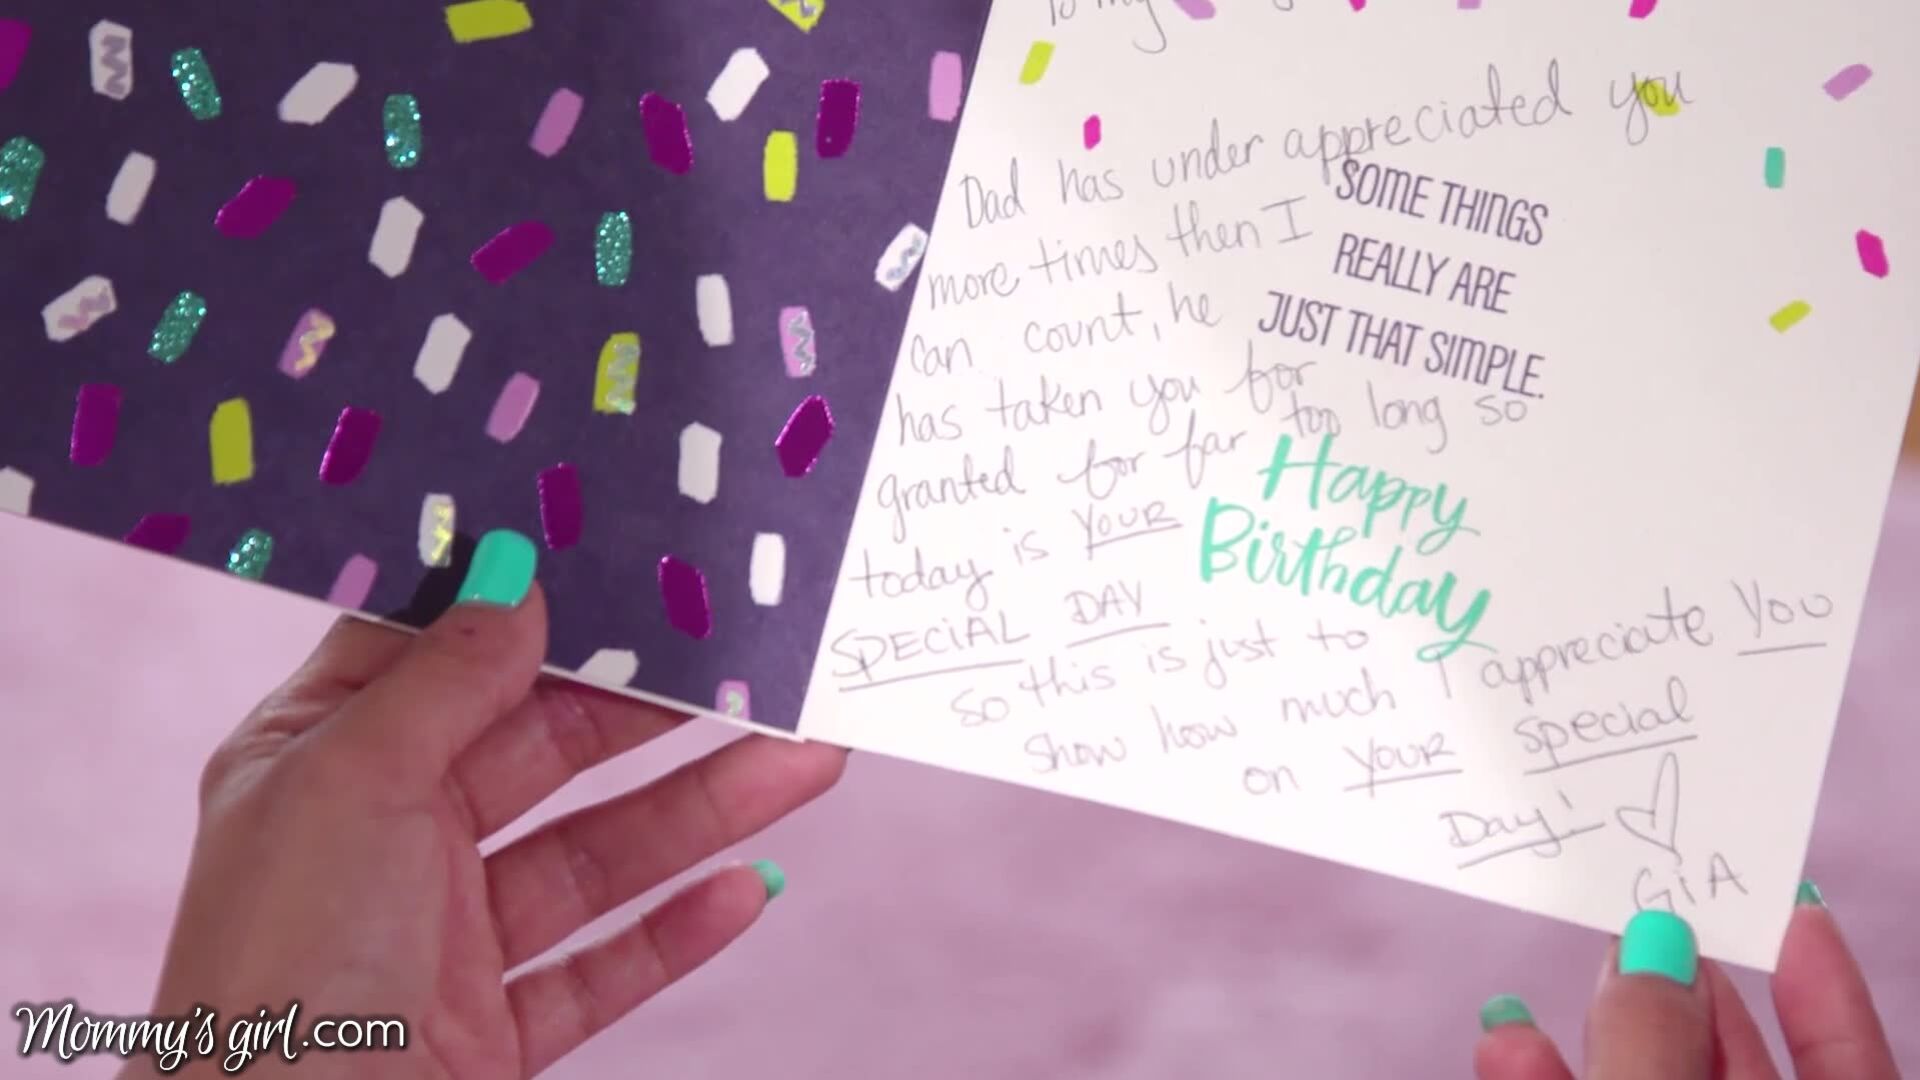 To my
Dad has under appreciated you
more times then I
can count, he
has taken you for
granted for far too long so
today is YOUR
SPECIAL DAY
so this is just to
show how much I appreciate You
on YOUR special
Day! ♡
GiA
SOME THINGS
REALLY ARE
JUST THAT SIMPLE.
Happy
Birthday
Mommy's girl.com